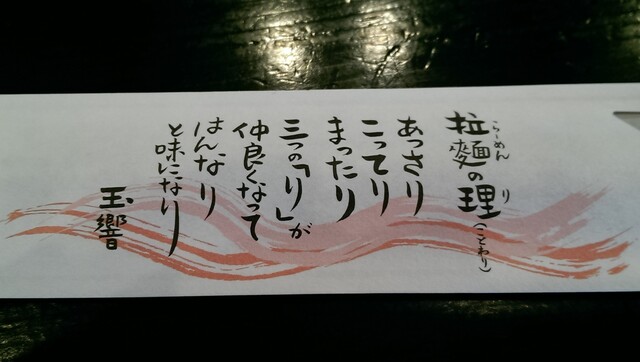 拉麵の理(ことわり)
らーめん
り
あっさり
こってり
まったり
三つの「り」が
仲良くなって
はんなり
と味になり
玉響